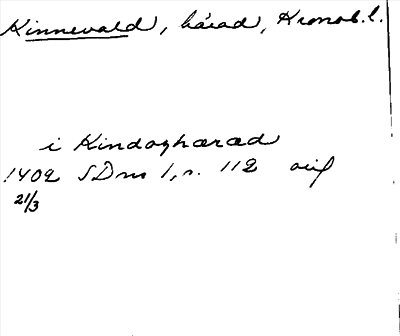 Kinnevald, härad, Kronob. l.
i Kindaghærad
1402 SDns 1, s. 112 avig
21/3